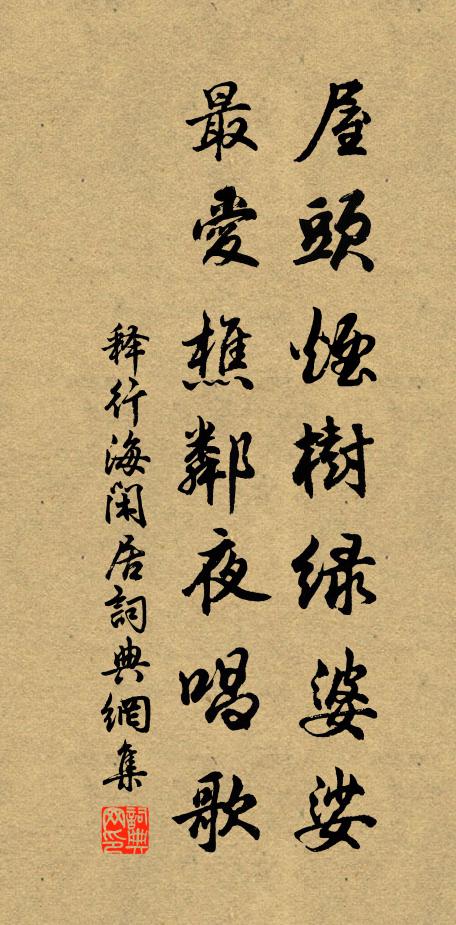 屋頭煙樹緑婆娑
最愛樵鄰夜唱歌
释行海閑居詞典網集
詞典网印